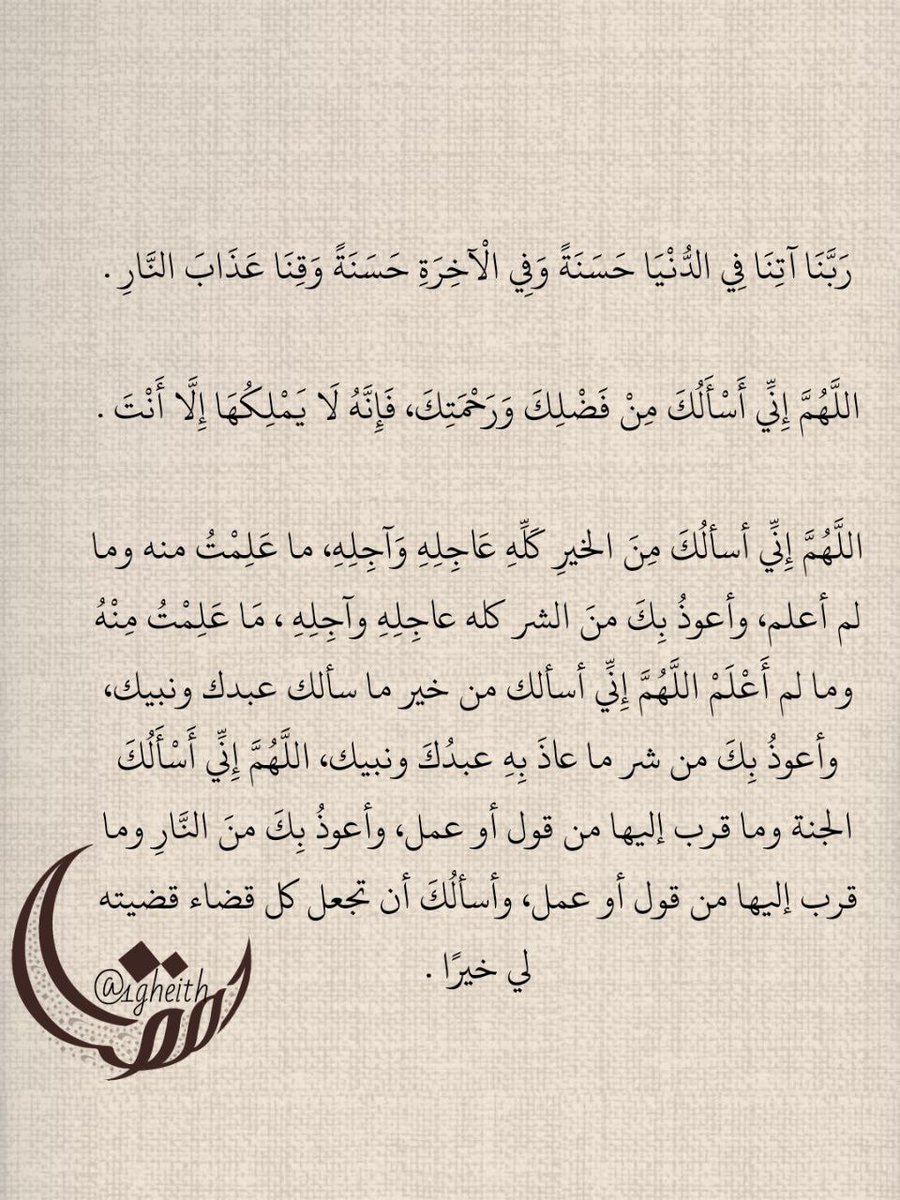 رَبَّنَا آتِنَا فِي الدُّنْيَا حَسَنَةً وَفِي الْآخِرَةِ حَسَنَةً وَقِنَا عَذَابَ النَّارِ .
اللَّهُمَّ إِنِّي أَسْأَلُكَ مِنْ فَضْلِكَ وَرَحْمَتِكَ، فَإِنَّهُ لَا يَمْلِكُهَا إِلَّا أَنْتَ .
اللَّهُمَّ إِنِّي أسألُكَ مِنَ الخيرِ كَلِّهِ عَاجِلِهِ وَآجِلِهِ، ما عَلِمْتُ منه وما
لم أعلم، وأعوذُ بِكَ منَ الشر كله عاجِلِهِ وآجِلِهِ ، مَا عَلِمْتُ مِنْهُ
وما لم أَعْلَمْ اللَّهُمَّ إِنِّي أسألك من خير ما سألك عبدك ونبيك،
وأعوذُ بِكَ من شر ما عاذَ بِهِ عبدُكَ ونبيك، اللَّهُمَّ إِنِّي أَسْأَلُكَ
الجنة وما قرب إليها من قول أو عمل، وأعوذُ بِكَ منَ النَّارِ وما
قرب إليها من قول أو عمل، وأسألُكَ أن تجعل كل قضاء قضيته
لي خيرًا .
@1gheith